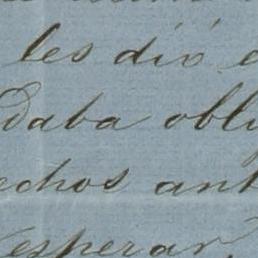 les dió
daba obli
echos ant
esperar,